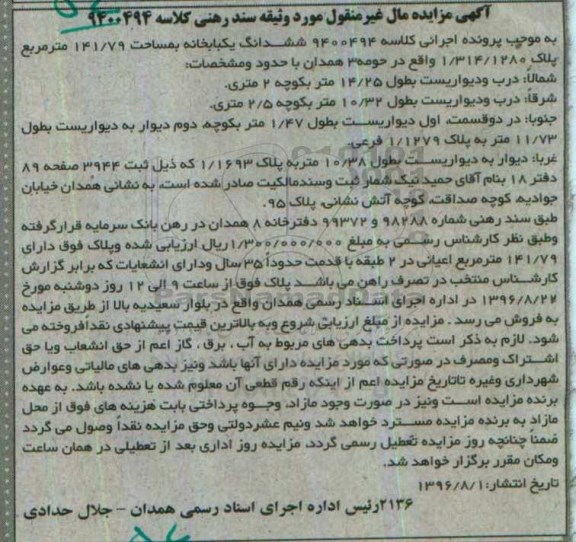 آگهی مزایده مال غیرمنقول مورد وثیقه سند رهنی کلاسه ۹۴۰۰۴۹۴
به موجب پرونده اجرائی کلاسه ۹۴۰۰۴۹۴ ششدانگ یکبابخانه بمساحت ۱۴۱/۷۹ مترمربع
پلاک ۱/۳۱۴/۱۲۸۰ واقع در حومه۳ همدان با حدود ومشخصات:
شمالاً: درب ودیواریست بطول ۱۴/۲۵ متر بکوچه ۲ متری.
شرقاً: درب ودیواریست بطول ۱۰/۳۲ متر بکوچه ۲/۵ متری.
جنوبا: در دوقسمت، اول دیواریست بطول ۱/۴۷ متر بکوچه، دوم دیوار به دیواریست بطول
۱۱/۷۳ متر به پلاک ۱/۱۲۷۹ فرعی.
غربا: دیوار به دیواریست بطول ۱۰/۳۸ متربه پلاک ۱/۱۶۹۳ که ذیل ثبت ۳۹۴۴ صفحه ۸۹
دفتر ۱۸ بنام آقای حمید نیک شمار ثبت وسندمالکیت صادر شده است، به نشانی همدان خیابان
جوادیه، کوچه صداقت، کوچه آتش نشانی، پلاک ۹۵.
طبق سند رهنی شماره ۹۸۲۸۸ و ۹۹۳۷۲ دفترخانه ۸ همدان در رهن بانک سرمایه قرارگرفته
وطبق نظر کارشناس رسمی به مبلغ ۱/۳۰۰/۰۰۰/۰۰۰ریال ارزیابی شده وپلاک فوق دارای
۱۴۱/۷۹ مترمربع اعیانی در ۲ طبقه با قدمت حدوداً ۳۵ سال ودارای انشعابات که برابر گزارش
کارشناس منتخب در تصرف راهن می باشد پلاک فوق از ساعت ۹ الی ۱۲ روز دوشنبه مورخ
۱۳۹۶/۸/۲۲ در اداره اجرای اسناد رسمی همدان واقع در بلوار سعیدیه بالا از طریق مزایده
به فروش می رسد . مزایده از مبلغ ارزیابی شروع وبه بالاترین قیمت پیشنهادی نقدافروخته می
شود. لازم به ذکر است پرداخت بدهی های مربوط به آب ، برق ، گاز اعم از حق انشعاب ویا حق
اشتراک ومصرف در صورتی که مورد مزایده دارای آنها باشد ونیز بدهی های مالیاتی وعوارض
شهرداری وغیره تاتاریخ مزایده اعم از اینکه رقم قطعی آن معلوم شده یا نشده باشد. به عهده
برنده مزایده است ونیز در صورت وجود مازاد، وجوه پرداختی بابت هزینه های فوق از محل
مازاد به برنده مزایده مسترد خواهد شد ونیم عشردولتی وحق مزایده نقداً وصول می گردد
ضمناً چنانچه روز مزایده تعطیل رسمی گردد، مزایده روز اداری بعد از تعطیلی در همان ساعت
ومکان مقرر برگزار خواهد شد.
تاریخ انتشار:۱۳۹۶/۸/۱
۲۱۳۶رئیس اداره اجرای اسناد رسمی همدان - جلال حدادی